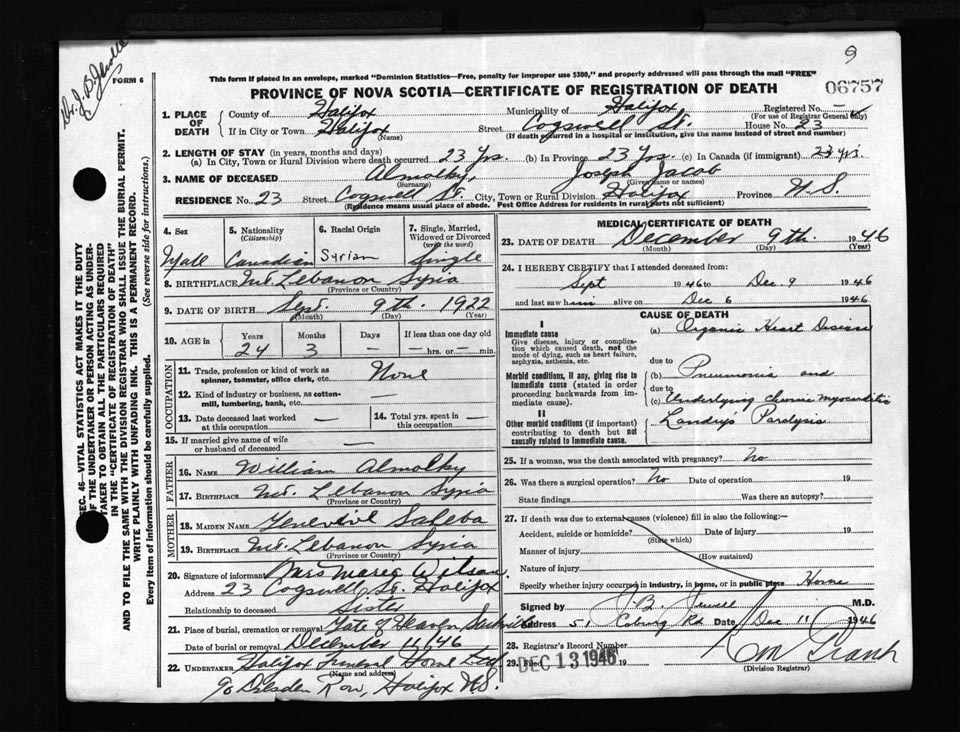 Dr. J. B. Jewell
9
FORM 6
This form if placed in an envelope, marked "Dominion Statistics—Free, penalty for improper use $300," and properly addressed will pass through the mail "FREE"
06757
PROVINCE OF NOVA SCOTIA—CERTIFICATE OF REGISTRATION OF DEATH
1. PLACE OF DEATH
County of Halifax Municipality of Halifax Registered No. –
(For use of Registrar General Only)
If in City or Town Halifax Street Cogswell St. House No. 23
(Name) (If death occurred in a hospital or institution, give the name instead of street and number)
2. LENGTH OF STAY (in years, months and days)
(a) In City, Town or Rural Division where death occurred 23 Yrs. (b) In Province 23 Yrs. (c) In Canada (if immigrant) 23 yrs.
3. NAME OF DECEASED Almolky, Joseph Jacob
(Surname) (Given name or names)
RESIDENCE No. 23 Street Cogswell St. City, Town or Rural Division Halifax Province N.S.
(Residence means usual place of abode. Post Office Address for residents in rural parts not sufficient)
4. Sex Male
5. Nationality (Citizenship) Canadian
6. Racial Origin Syrian
7. Single, Married, Widowed or Divorced (write the word) Single
8. BIRTHPLACE Mt. Lebanon Syria
(Province or Country)
9. DATE OF BIRTH Sept. 9th. 1922
(Month) (Day) (Year)
10. AGE in Years 24 Months 3 Days – If less than one day old – hrs. or – min.
OCCUPATION
11. Trade, profession or kind of work as spinner, teamster, office clerk, etc. None
12. Kind of industry or business, as cotton-mill, lumbering, bank, etc. —
13. Date deceased last worked at this occupation —
14. Total yrs. spent in this occupation —
15. If married give name of wife or husband of deceased —
FATHER
16. NAME William Almolky
17. BIRTHPLACE Mt. Lebanon Syria
(Province or Country)
MOTHER
18. MAIDEN NAME Saheba
19. BIRTHPLACE Mt. Lebanon Syria
(Province or Country)
20. Signature of informant Mrs Wilson.
Address 23 Cogswell St. Halifax
Relationship to deceased Sister
21. Place of burial, cremation or removal Gate of Heaven Sackville
Date of burial or removal December 11/46
22. UNDERTAKER Halifax Funeral Home Ltd
(Name and address)
90 Dresden Row, Halifax N.S.
MEDICAL CERTIFICATE OF DEATH
23. DATE OF DEATH December 9th. 1946
(Month) (Day) (Year)
24. I HEREBY CERTIFY that I attended deceased from:
Sept 1946 to Dec 9 1946
and last saw him alive on Dec 6 1946
CAUSE OF DEATH
I
Immediate cause
Give disease, injury or complication which caused death, not the mode of dying, such as heart failure, asphyxia, asthenia, etc.
(a) Organic Heart Disease
due to
Morbid conditions, if any, giving rise to immediate cause (stated in order proceeding backwards from immediate cause).
(b) Pneumonia and
due to
(c) Underlying chronic myocarditis
II
Other morbid conditions (if important) contributing to death but not causally related to immediate cause.
Landry's Paralysis
25. If a woman, was the death associated with pregnancy? No
26. Was there a surgical operation? No Date of operation 19
State findings Was there an autopsy?
27. If death was due to external causes (violence) fill in also the following:—
Accident, suicide or homicide? Date of injury 19
(State which)
Manner of injury
(How sustained)
Nature of injury
Specify whether injury occurred in industry, in home, or in public place Home
Signed by J. B. Jewell M.D.
Address 51 Coburg Rd Date Dec 11 1946
28. Registrar's Record Number
29. Filed DEC 13 1946 19
(Division Registrar)
SEC. 46—VITAL STATISTICS ACT MAKES IT THE DUTY
OF THE UNDERTAKER OR PERSON ACTING AS UNDER-
TAKER TO OBTAIN ALL THE PARTICULARS REQUIRED
IN THE "CERTIFICATE OF REGISTRATION OF DEATH"
AND TO FILE THE SAME WITH THE DIVISION REGISTRAR WHO SHALL ISSUE THE BURIAL PERMIT.
WRITE PLAINLY WITH UNFADING INK. THIS IS A PERMANENT RECORD.
Every item of information should be carefully supplied. (See reverse side for instructions.)